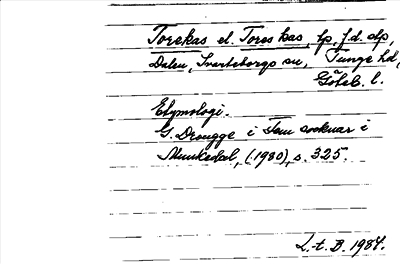 Torekas el. Tores kas, lp, f.d. alp,
Dalen, Svarteborgs sn, Tunge hd,
Göteb. l.
Etymologi.
G. Drougge i Fem socknar i
Munkedal, (1980), s. 325.
L.t.B. 1984.